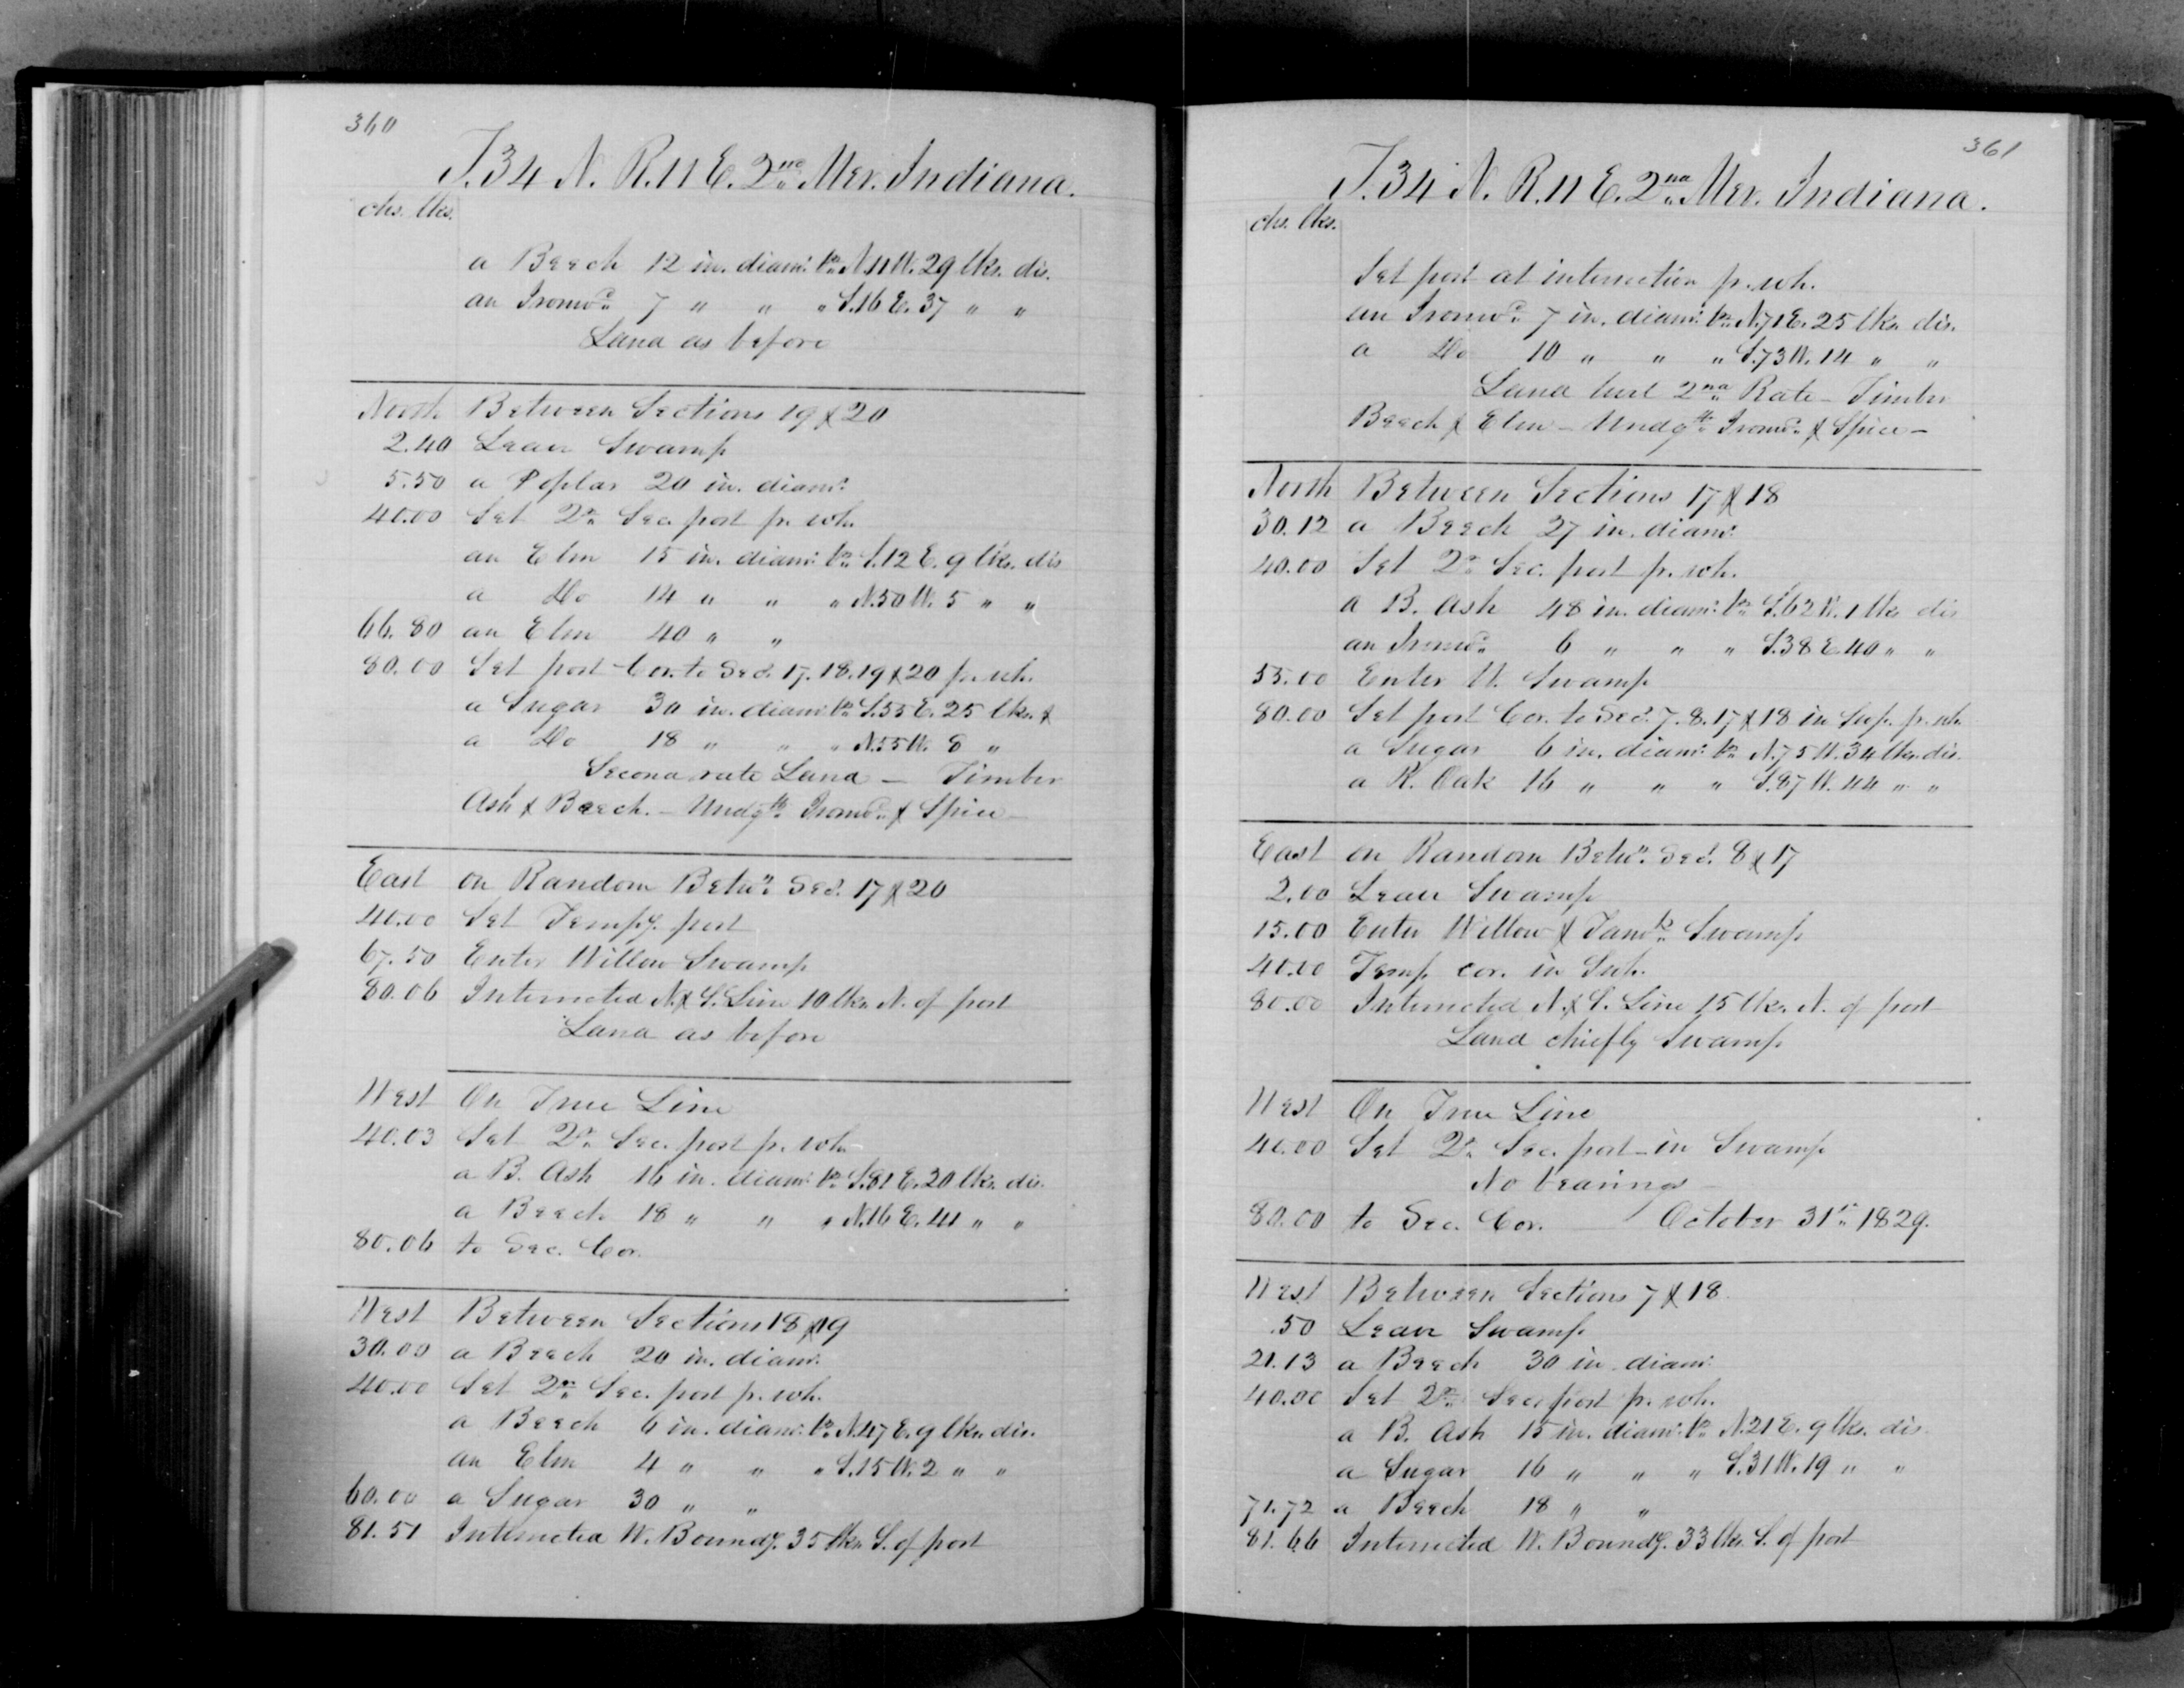 360
T. 34 N. R. 11 E. 2nd Mer. Indiana.
chs. lks.
a Beech 12 in. diamr. brs. N. 11 W. 29 lks. dis.
an Ironwd. 7 " " " S. 16 E. 37 " "
Land as before
North Between Sections 19 & 20
2.40 Leave Swamp
5.50 a Poplar 20 in. diamr.
40.00 Set Qr. Sec. post pr. wh.
an Elm 15 in. diamr. brs. S. 12 E. 9 lks. dis
a Do 14 " " " N. 50 W. 5 " "
66.80 an Elm 40 " "
80.00 Set post Cor. to Secs. 17. 18. 19 & 20 pr. wh.
a Sugar 30 in. diamr. brs. S. 55 E. 25 lks. &
a Do 18 " " " N. 55 W. 8 "
Second rate Land — Timber
Ash & Beech. — Undgth. Ironwd. & Spice —
East on Random Betwn. Secs. 17 & 20
40.00 Set Tempy. post
67.50 Enter Willow Swamp
80.06 Intersected N. & S. Line 10 lks. N. of post
Land as before
West On True Line
40.03 Set Qr. Sec. post pr. wh.
a B. Ash 16 in. diamr. brs. S. 81 E. 20 lks. dis.
a Beech 18 " " " N. 16 E. 41 " "
80.06 to Sec. Cor.
West Between Sections 18 & 19
30.00 a Beech 20 in. diamr.
40.00 Set Qr. Sec. post pr. wh.
a Beech 6 in. diamr. brs. N. 47 E. 9 lks. dis.
an Elm 4 " " " S. 15 W. 2 " "
60.00 a Sugar 30 " "
81.51 Intersected W. Boundy. 35 lks. S. of post
361
T. 34 N. R. 11 E. 2nd Mer. Indiana.
chs. lks.
Set post at intersection pr. wh.
an Ironwd. 7 in. diamr. brs. N. 71 E. 25 lks. dis.
a Do 10 " " " S. 73 W. 14 " "
Land 2nd Rate — Timber
Beech & Elm — Undgth. Ironwd. & Spice —
North Between Sections 17 & 18
30.12 a Beech 27 in. diamr.
40.00 Set Qr. Sec. post pr. wh.
a B. Ash 48 in. diamr. brs. S. 62 W. 1 lks. dis
an Ironwd. 6 " " " S. 38 E. 40 " "
55.00 Enter W. Swamp
80.00 Set post Cor. to Secs. 7. 8. 17 & 18 in Swp. pr. wh
a Sugar 6 in. diamr. brs. N. 75 W. 34 lks. dis.
a R. Oak 16 " " " S. 87 W. 44 " "
East on Random Betwn. Secs. 8 & 17
2.00 Leave Swamp
15.00 Enter Willow & Tamk. Swamp
40.00 Temp cor. in Swp.
80.00 Intersected N. & S. Line 15 lks. N. of post
Land chiefly Swamp
West On True Line
40.00 Set Qr. Sec. post — in Swamp
No bearings —
80.00 to Sec. Cor. October 31st 1829.
West Between Sections 7 & 18
.50 Leave Swamp
21.13 a Beech 30 in diamr.
40.00 Set Qr. Sec. post pr. wh.
a B. Ash 15 in. diamr. brs. N. 21 E. 9 lks. dis.
a Sugar 16 " " " S. 31 W. 19 " "
71.72 a Beech 18 " "
81.66 Intersected W. Boundy. 33 lks. S. of post